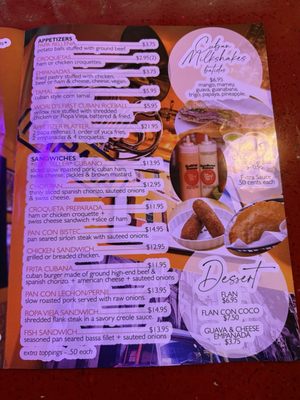 APPETIZERS
PAPA RELLENA $3.75
potato balls stuffed with ground beef.
CROQUETAS $2.95(2)
ham or chicken croquettes.
EMPANADAS $3.75
fried pastry stuffed with chicken,
beef or ham & cheese, cheese, vegan.
TAMAL $5.95
cuban style corn tamal.
WORLD'S FIRST CUBAN RICE BALL $5.95
yellow rice stuffed with shredded
chicken or Ropa Vieja, battered & fried.
APPETIZER PLATTER $21.95
2 papa rellenas, 1 order of yuca fries,
2 empanadas & 4 croquetas.
SANDWICHES
CUBANO $13.95
sliced slow roasted pork, cuban ham,
swiss cheese, pickles & brown mustard.
$12.95
thinly sliced spanish chorizo, sauteed onions
& swiss cheese.
CROQUETA PREPARADA $11.95
ham or chicken croquette +
swiss cheese sandwich + slice of ham
PAN CON BISTEC $14.95
pan seared sirloin steak with sauteed onions.
CHICKEN SANDWICH $12.95
grilled or breaded chicken.
FRITA CUBANA $11.95
cuban burger made of ground high-end beef &
spanish chorizo + american cheese + sauteed onions
PAN CON LECHON/PERNIL $13.95
slow roasted pork served with raw onions.
ROPA VIEJA SANDWICH $14.95
shredded flank steak in a savory creole sauce.
FISH SANDWICH $13.95
seasoned pan seared bassa fillet + sauteed onions
extra toppings - .50 each
Cuban
Milkshakes
batidos
$6.95
mango, mamey,
guava, guanabana,
trigo, papaya, pineapple.
Extra Sauce
50 cents each
Dessert
FLAN
$6.95
FLAN CON COCO
$7.50
GUAVA & CHEESE
EMPANADA
$3.75